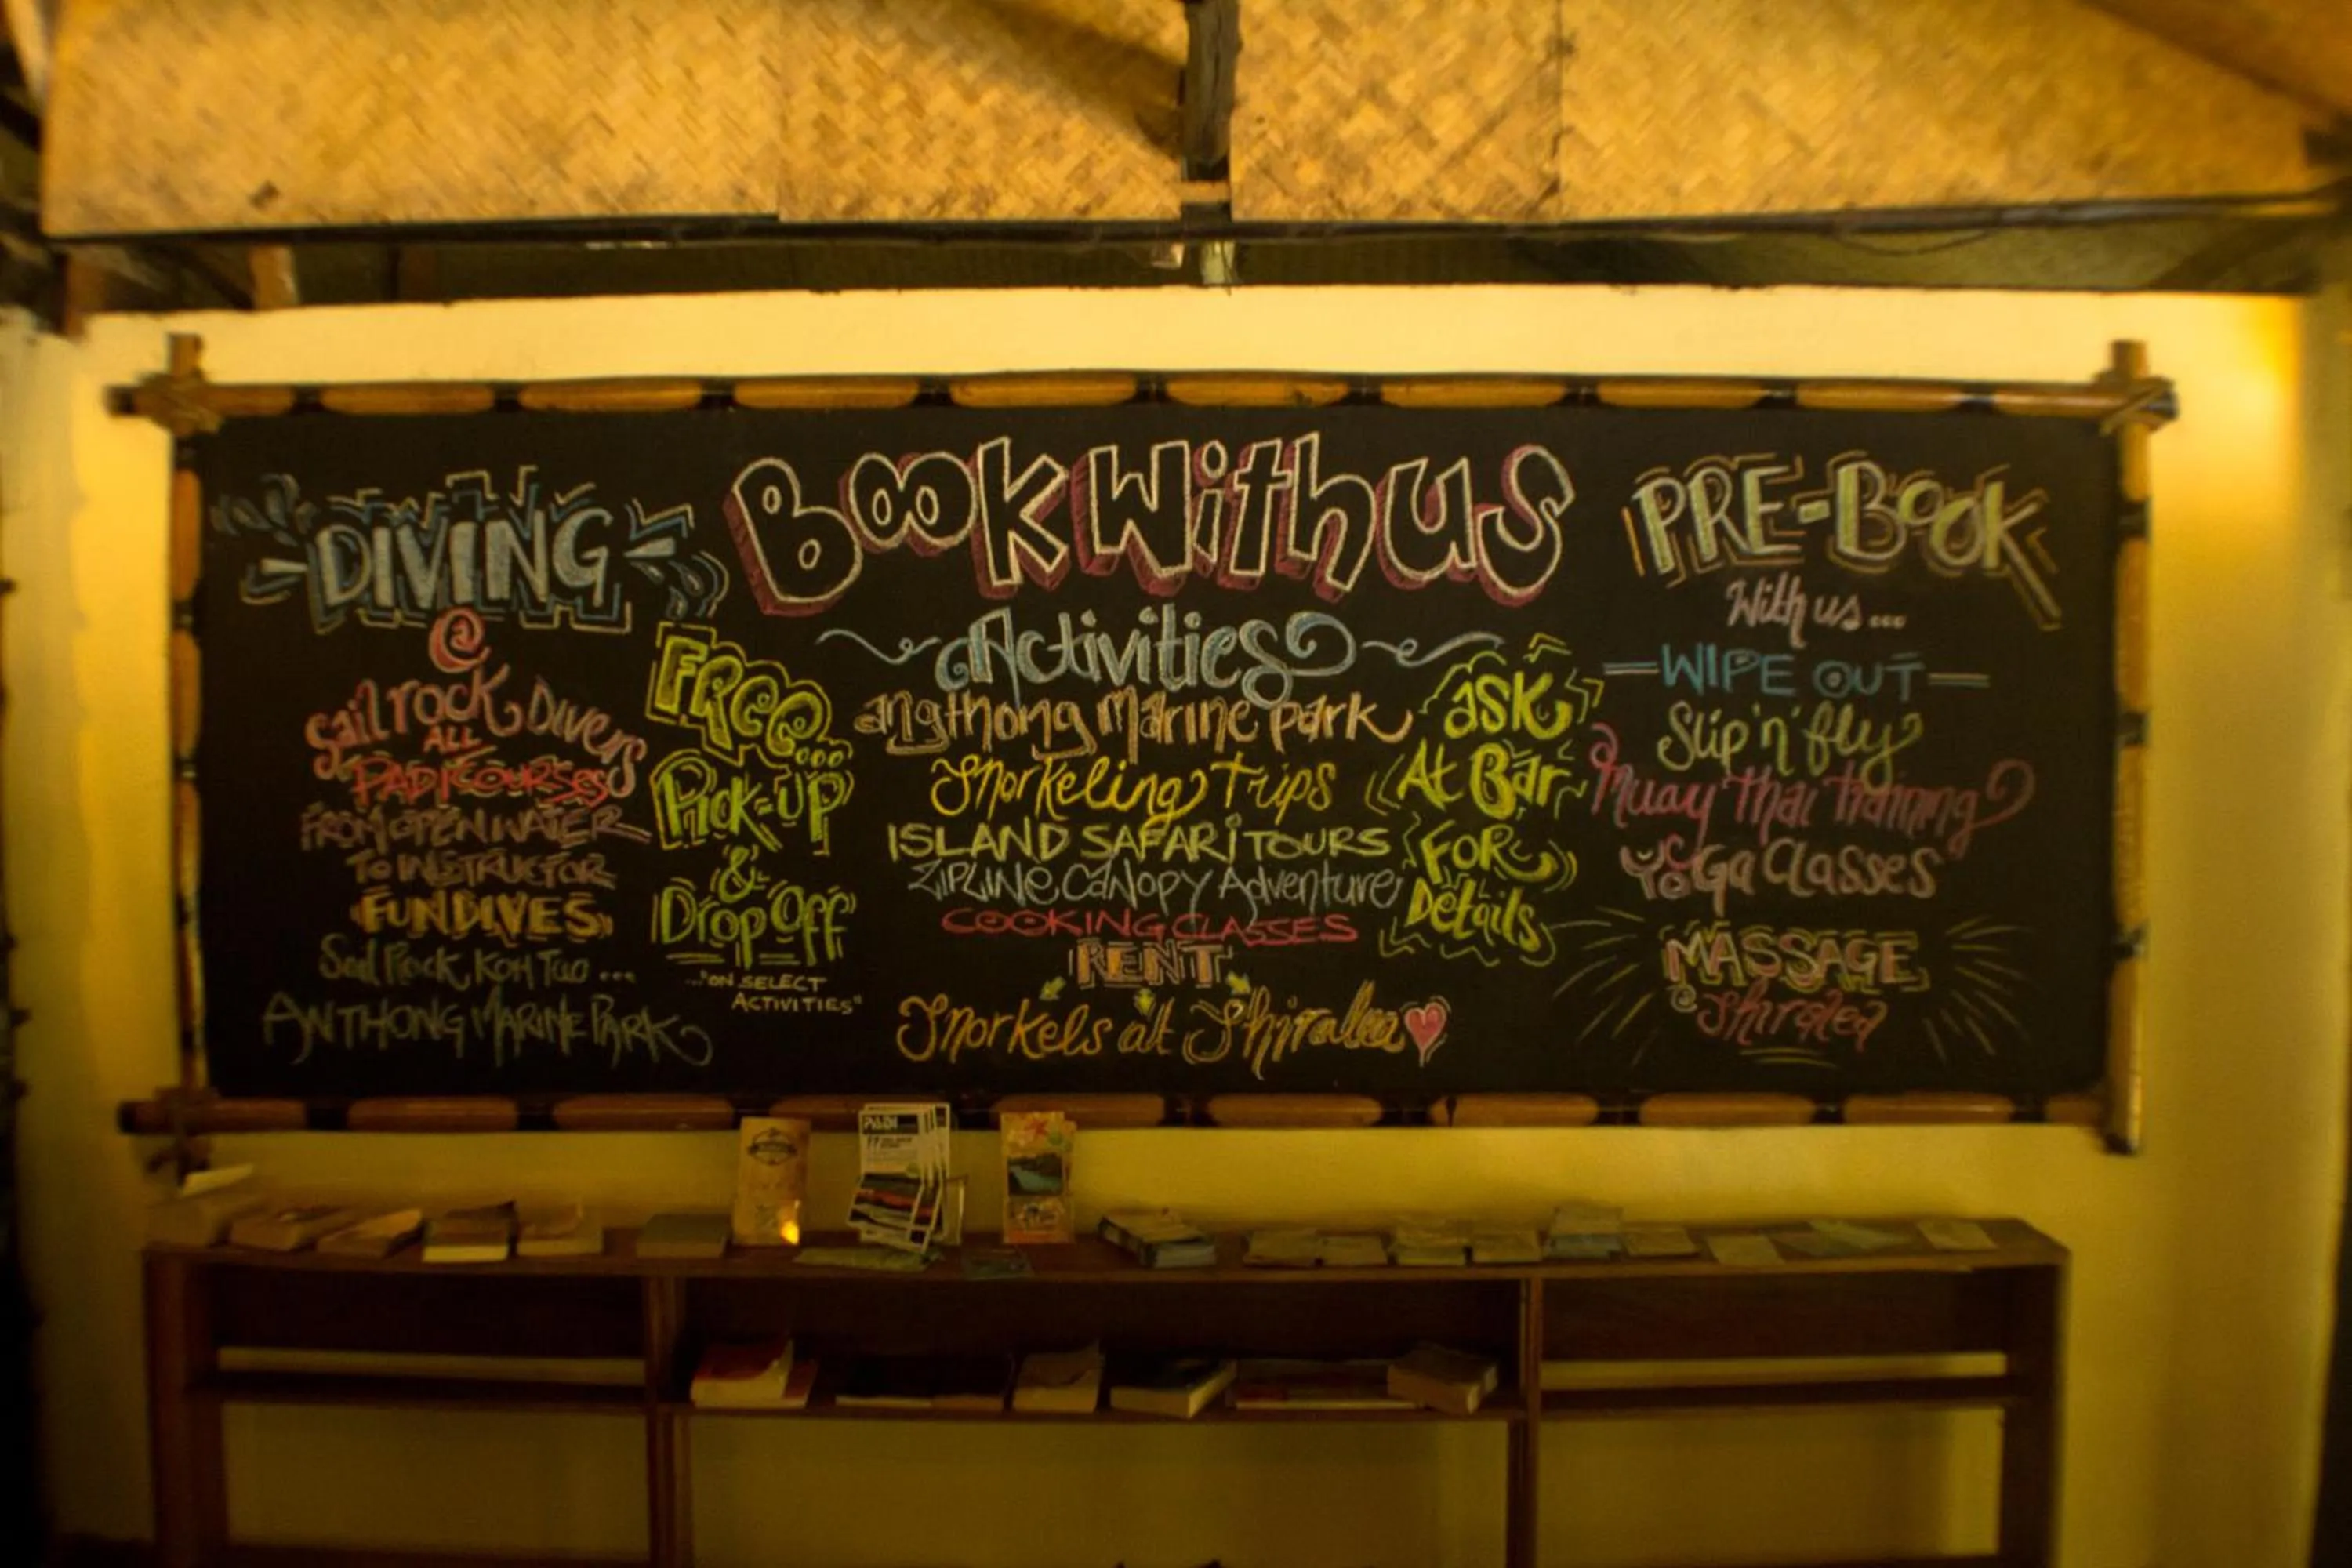 Book With us
DIVING
@
Sail rock Divers
ALL
PADI COURSES
FROM OPEN WATER
TO INSTRUCTOR
FUN DIVES
Sail Rock, Koh Tao ...
ANTHONG MARINE PARK
FREE...
Pick-UP
&
Drop Off
..."ON SELECT
ACTIVITIES"
Activities
angthong Marine park
Snorkeling Trips
ISLAND SAFARI TOURS
ZIPLINE, CANOPY Adventure
COOKING CLASSES
RENT
Snorkels at Shiralea
ask
At Bar
FOR
Details
PRE-BOOK
With us...
WIPE OUT
Slip 'n' fly
Muay Thai Training
YoGa Classes
MASSAGE
@ Shiralea
PADI